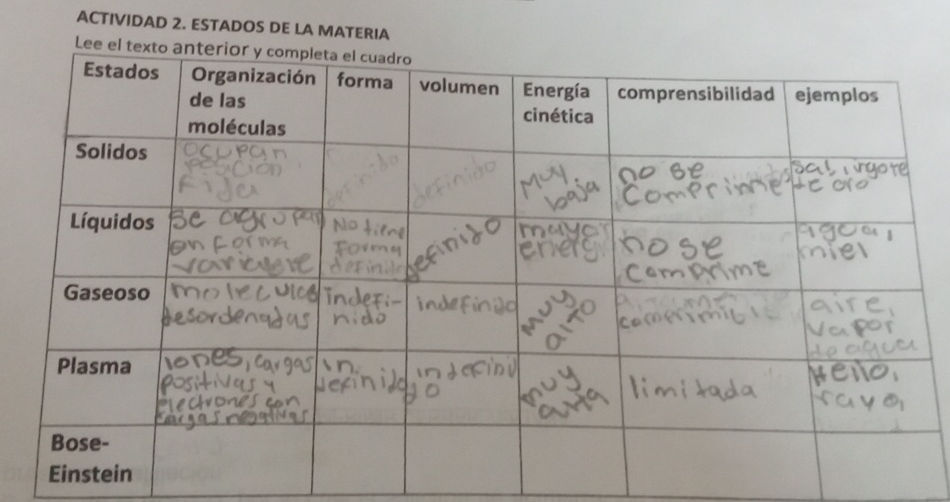 ACTIVIDAD 2. ESTADOS DE LA MATERIA
Lee el texto anterior y completa el cuadro
Estados Organización de las moléculas forma volumen Energía cinética comprensibilidad ejemplos
Solidos
ocupan
posición
Fija
definido
definido
Muy
baja
no se
comprime
sal,
de oro
Líquidos
se agrupan
en forma
variable
No tiene
forma
definida
definido
mayor
energ
no se
comprime
agua,
miel
Gaseoso
moleculas
desordenadas
indefi-
nido
indefinido
muy
alto
comprimible
aire,
vapor
de agua
Plasma
iones, cargas
positivas y
electrones con
cargas negativas
in
definido
indefini
do
muy
alta
limitada
rayo,
Bose-
Einstein